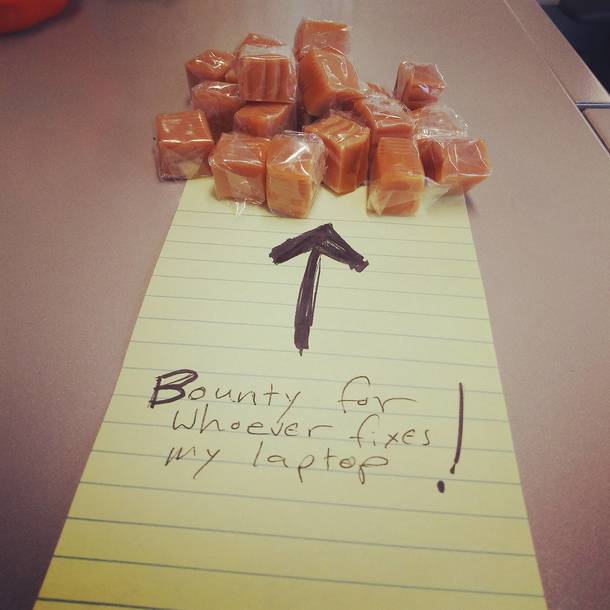 Bounty for
whoever fixes
my laptop !